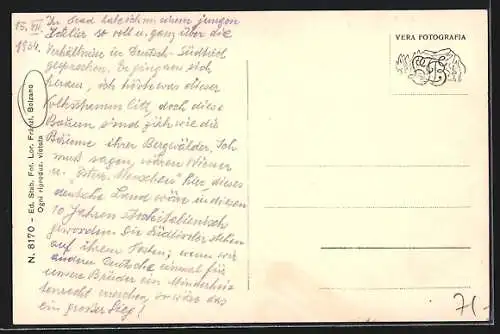 15. VII.
1934.
In Grad habe ich m. einem jungen
Hotelier so voll u. ganz über die
Verhältnisse in Deutsch-Südtirol
gesprochen. Er
werden, ich
Volksstamm litt, doch diese
Bauern sind zäh wie die
Bäume ihrer Bergwälder. Ich
muß sagen, wären Wiener
u. "österr. Menschen" hier, dieses
deutsche Land wäre in diesen
10 Jahren Erzitalienisch
geworden. Die Südtiroler stehen
auf ihrem Posten; wenn wir
anderen Deutsche einmal für
unsere Brüder ein Minderhei-
tenrecht so wäre das
ein großer Sieg!
N. 8170 - Ed. Stab. Fot. Lor. Fränzl, Bolzano
Ogni riproduz. vietata
VERA FOTOGRAFIA
7/-